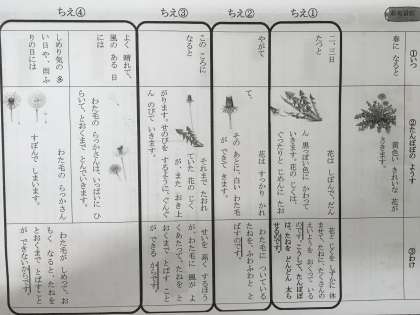 ①いつ
②たんぽぽの ようす
③わけ
春に なると
黄色い きれいな 花が
さきます。
ちえ①
二、三日
たつと
花は しぼんで、だん
ん 黒っぽい色に かわって
いきます。花のじくは、
ぐったりと じめんに たお
花と じくを しずかに 休
ませて、たねに、たくさんの
えいようを おくって いる
のです。こうして、たんぽぽ
は、たねを どんどん 太ら
せるのです。
ちえ②
やがて
花は すっかり かれ
て、
その あとに、白い わた毛
が できて きます。
わた毛に ついている
たねを、ふわふわと と
ばすのです。
ちえ③
この ころに
なると
それまで たおれ
ていた 花の じく
が、また おき上
がります。せのびを
するように、ぐんぐ
ん のびて いきます。
せいを 高く するほう
が、わた毛に 風が よ
く あたって、たねを
とおくまで とばすこと
が できる からです。
ちえ④
よく 晴れて、
風の ある 日
には
わた毛の らっかさんは、いっぱいに ひ
らいて、とおくまで とんでいきます。
しめり気の 多
い日や、雨ふ
りの日には
わた毛の らっかさん
すぼんで しまいます。
わた毛が しめって、お
もく なると、たねを
とおくまで とばすこと
が できないからです。